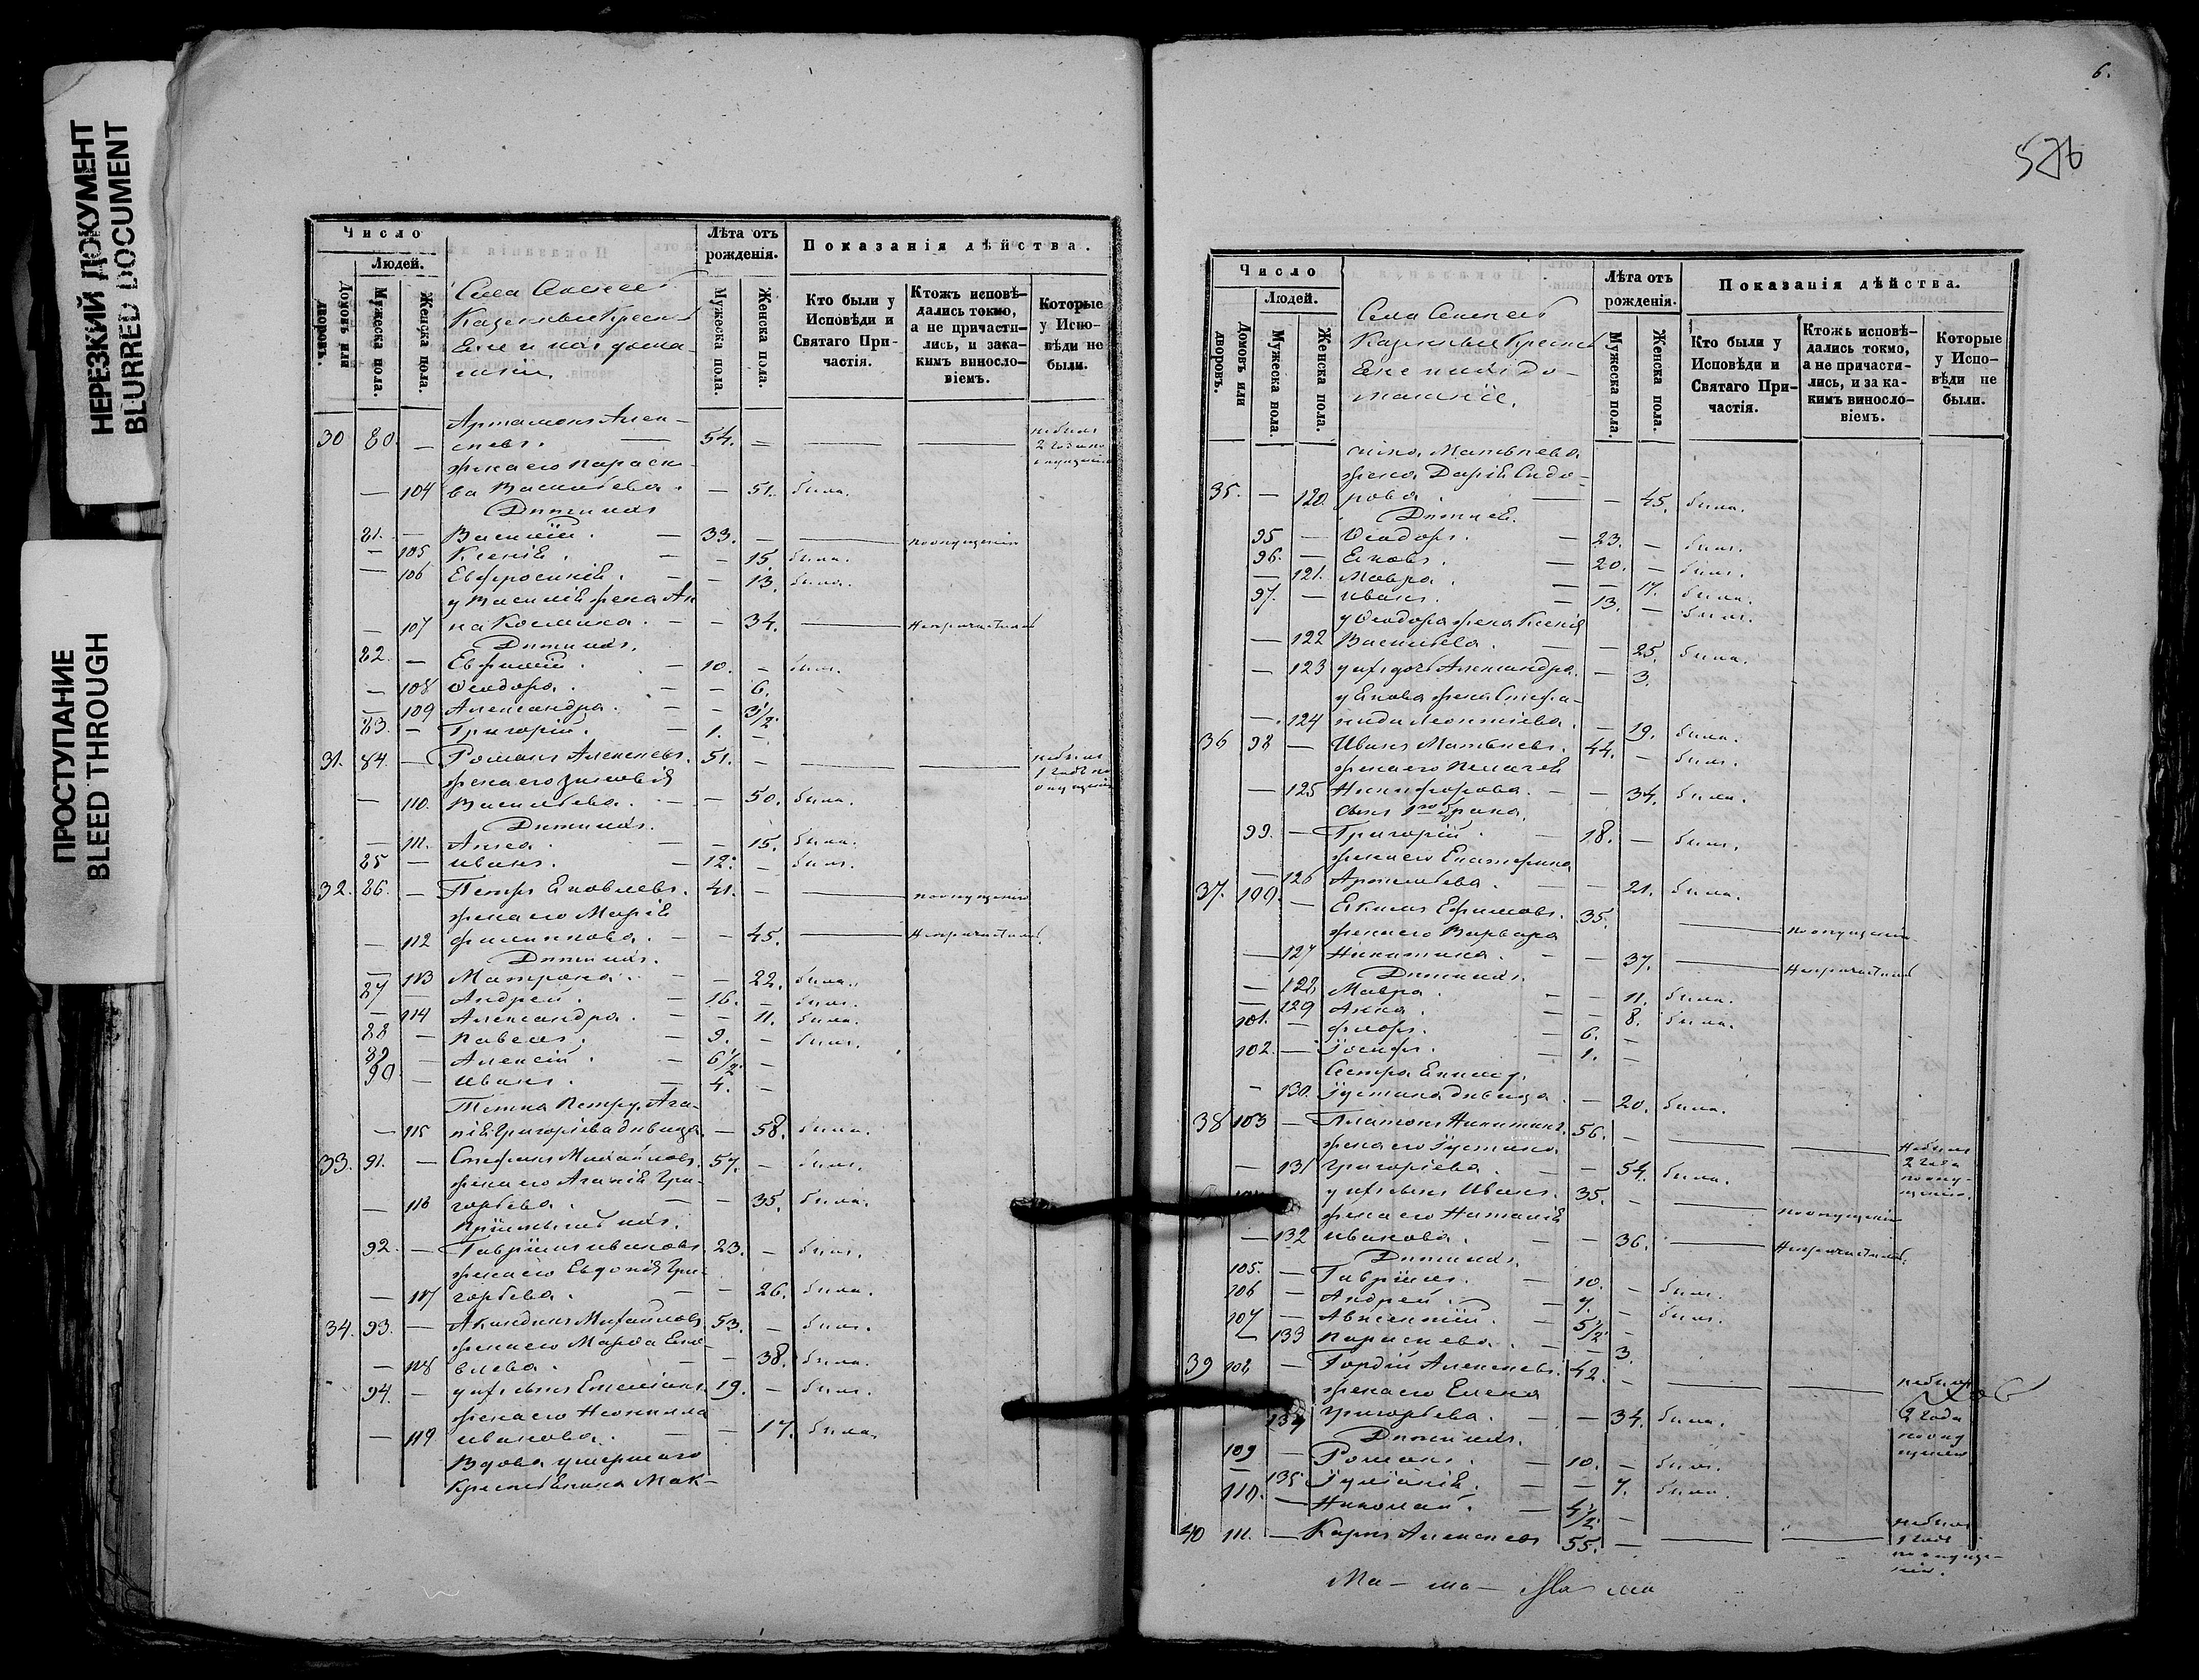 НЕРЕЗКИЙ ДОКУМЕНТ
BLURRED DOCUMENT
ПРОСТУПАНИЕ
BLEED THROUGH
Число
Людей.
Домовъ или дворовъ.
Мужеска пола.
Женска пола.
Села
Казенные Крестьяне и ихъ домашніе
Лѣта отъ рожденія.
Мужеска пола.
Женска пола.
Показанія дѣйства.
Кто были у Исповѣди и Святаго Причастія.
Ктожъ исповѣдались токмо, а не причастились, и за какимъ винословіемъ.
Которые у Исповѣди не были.
30 80. — Артамонъ Алексѣевъ. — 54. — не былъ 2 года по опущенію
жена его Параскева
— 104 Васильева. — 51. была.
Дѣти ихъ
81. — Василій. — 33. — по опущенію
— 105 Ксенія. — 15. была.
— 106 Евфросинія. — — 13. была.
у Василія жена Анна
— 107 Космина. — — 34. Непричастна
Дѣти ихъ.
82. — Евфимій. — 10. — былъ.
— 108 Ѳеодора. — — 6.
— 109 Александра. — — 3½.
83. — Григорій. — 1. —
31. 84. — Романъ Алексѣевъ. 51. — не былъ 1 годъ по опущенію
жена его Зиновія
— 110. Васильева. — — 50. была.
Дѣти ихъ.
— 111. Анна. — 15. была.
85 — Иванъ. — 12. — былъ.
32. 86. — Петръ Яковлевъ. 41. — по опущенію
жена его Марія
— 112 Филиппова. — — 45. Непричастна.
Дѣти ихъ.
— 113 Матрона. — 22. была.
87 — Андрей. — 16. — былъ.
— 114 Александра. — — 11. была.
88 — Павелъ. — 9. — былъ.
89 — Алексій. — 6½. —
90. — Иванъ. — 4. —
Тетка Петру, Ага-
— 115 пія Григоріева дѣвица. — 58. была.
33. 91. — Стефанъ Михайловъ. 57. — былъ.
жена его Агапія Гри-
— 116 горьева. — — 35. была.
Пріемышъ ихъ.
92. — Гавріилъ Ивановъ. 23. — былъ.
жена его Евдокія Гри-
— 117 горьева. — — 26. была.
34. 93. — Акиндинъ Михайловъ. 53. — былъ.
жена его Марѳа Яко-
— 118 влева. — — 38. была.
94. — у нихъ сынъ Емеліанъ. 19. — былъ.
жена его Неонилла
— 119 Иванова. — — 17. была.
Вдова умершаго
Крестьянина Мак-
6.
576
Число
Людей.
Домовъ или дворовъ.
Мужеска пола.
Женска пола.
Села
Казенные Крестьяне и ихъ домашніе.
Лѣта отъ рожденія.
Мужеска пола.
Женска пола.
Показанія дѣйства.
Кто были у Исповѣди и Святаго Причастія.
Ктожъ исповѣдались токмо, а не причастились, и за какимъ винословіемъ.
Которые у Исповѣди не были.
сима Матвѣева
жена Дарія Сидо-
35. — 120. рова. — — 45. была.
Дѣти ея.
95 — Ѳеодоръ. — 23. — былъ.
96. — Яковъ. — 20. — былъ.
— 121. Мавра. — — 17. была.
97. — Иванъ. — 13. — былъ.
у Ѳеодора жена Ксенія
— 122 Васильева. — — 25. была.
— 123 у нихъ дочь Александра. — 3.
у Якова жена Стефа-
— 124 нида Леонтіева. — 19. была.
36 98 — Иванъ Матвѣевъ. 44. — былъ.
жена его Пелагея
— 125 Никифорова. — — 34. была.
Сынъ 1го брака,
99. — Григорій. — 18. — былъ.
жена его Екатерина
— 126 Артемьева. — — 21. была.
37. 100. — Екимъ Ефимовъ. 35. по опущенію
жена его Варвара
— 127 Никитина. — — 37. Непричастна
Дѣти ихъ.
— 128 Мавра. — — 11. была.
— 129 Анна. — — 8. была.
101. — Флоръ. — 6. —
102. — Іосифъ. — 1. —
Сестра Екиму,
— 130. Іустина дѣвица. — 20. была.
38 103 — Платонъ Никитинъ. 56. — Не былъ 2 года по опущенію.
жена его Іустина
— 131 Григоріева. — — 54. была.
у нихъ сынъ Иванъ. 35. — по опущенію
жена его Наталія
— 132 Иванова. — — 36. Непричастна.
Дѣти ихъ.
105. — Гавріилъ. — 10. — былъ.
106 — Андрей. — 7. — былъ.
107 — Авксентій. — 5½. —
— 133 Параскева. — — 3.
39 108 — Гордій Алексѣевъ. 42. — не былъ 2 года по опущенію
жена его Елена
134 Григорьева. — — 34. была.
Дѣти ихъ.
109 — Романъ. — 10. — былъ.
— 135 Іуліанія. — — 7. была.
110. — Николай. — 4½. —
40 111. — Карпъ Алексѣевъ 55. — не былъ 1 годъ по опущенію.